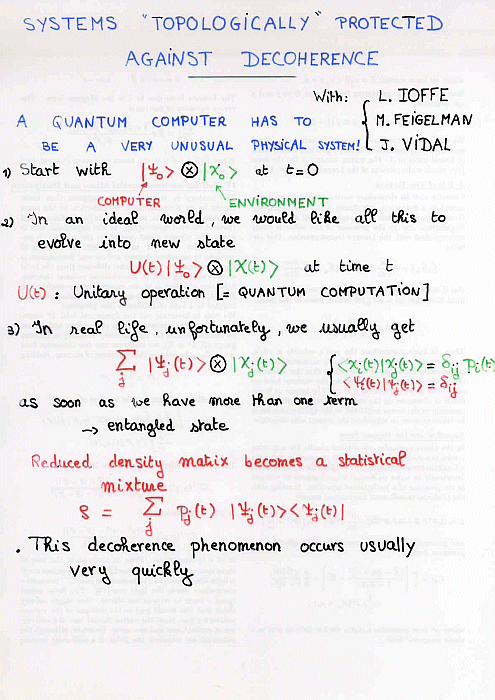 SYSTEMS "TOPOLOGICALLY" PROTECTED
AGAINST DECOHERENCE
With: { L. IOFFE
M. FEIGELMAN
J. VIDAL
A QUANTUM COMPUTER HAS TO
BE A VERY UNUSUAL PHYSICAL SYSTEM!
1) Start with |Ψ₀> ⊗ |χ₀> at t=0
COMPUTER ENVIRONMENT
2) In an ideal world, we would like all this to
evolve into new state
U(t)|Ψ₀> ⊗ |χ(t)> at time t
U(t) : Unitary operation [= QUANTUM COMPUTATION]
3) In real life, unfortunately, we usually get
∑_j |Ψ_j(t)> ⊗ |χ_j(t)> { <χ_i(t)|χ_j(t)> = δ_ij p_i(t)
<Ψ_i(t)|Ψ_j(t)> = δ_ij
as soon as we have more than one term
→ entangled state
Reduced density matrix becomes a statistical
mixture
ρ = ∑_j p_j(t) |Ψ_j(t)><Ψ_j(t)|
. This decoherence phenomenon occurs usually
very quickly